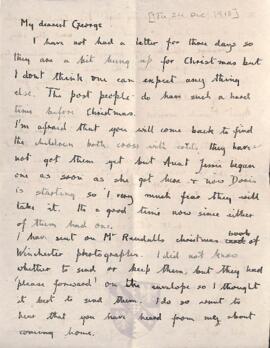 My dearest George
[Tu. 24 Dec. 1918]
I have not had a letter for three days so
they are a bit hung up for Christmas but
I don't think one can expect any thing
else. The post people do have such a hard
time before Christmas.
I'm afraid that you will come back to find
the children both cross with colds, they have
not got them yet but Aunt Jessie began
one as soon as she got here & now Doris
is starting so I very much fear they will
take it. It's a good time now since either
of them had one.
I have sent on Mr Randalls christmas book of
Winchester photographs. I did not know
whether to send or keep them, but they had
'please forward' on the envelope so I thought
it best to send them. I do so want to
hear that you have heard from about
coming home.